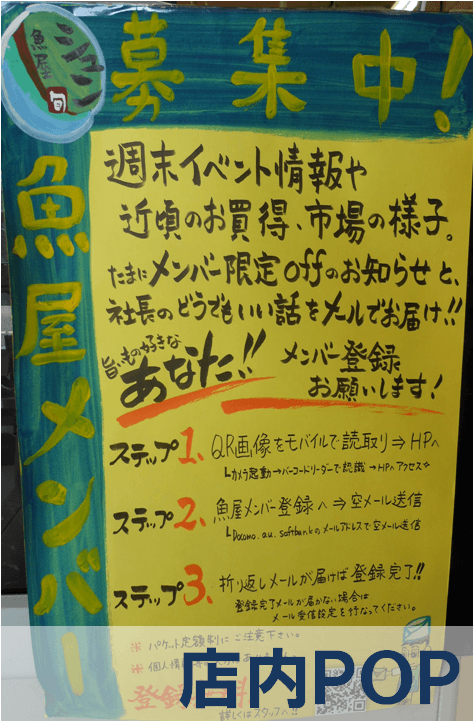 魚屋
シュン
旬
募集中!
魚屋メンバー
週末イベント情報や
近頃のお買得、市場の様子。
たまにメンバー限定offのお知らせと、
社長のどうでもいい話をメールでお届け!!
旨いもの好きな
あなた!!
メンバー登録
お願いします!
ステップ1、QR画像をモバイルで読取り⇒HPへ
カメラ起動→バーコードリーダーで認識→HPへアクセス☆
ステップ2、魚屋メンバー登録へ⇒空メール送信
Docomo.au.softbankのメールアドレスで空メール送信
ステップ3、折り返しメールが届けば登録完了!!
登録完了メールが届かない場合は
メール受信設定を行なってください。
※パケット定額制にご注意下さい。
※個人情報
登録
詳しくはスタッフへ!!
店内POP